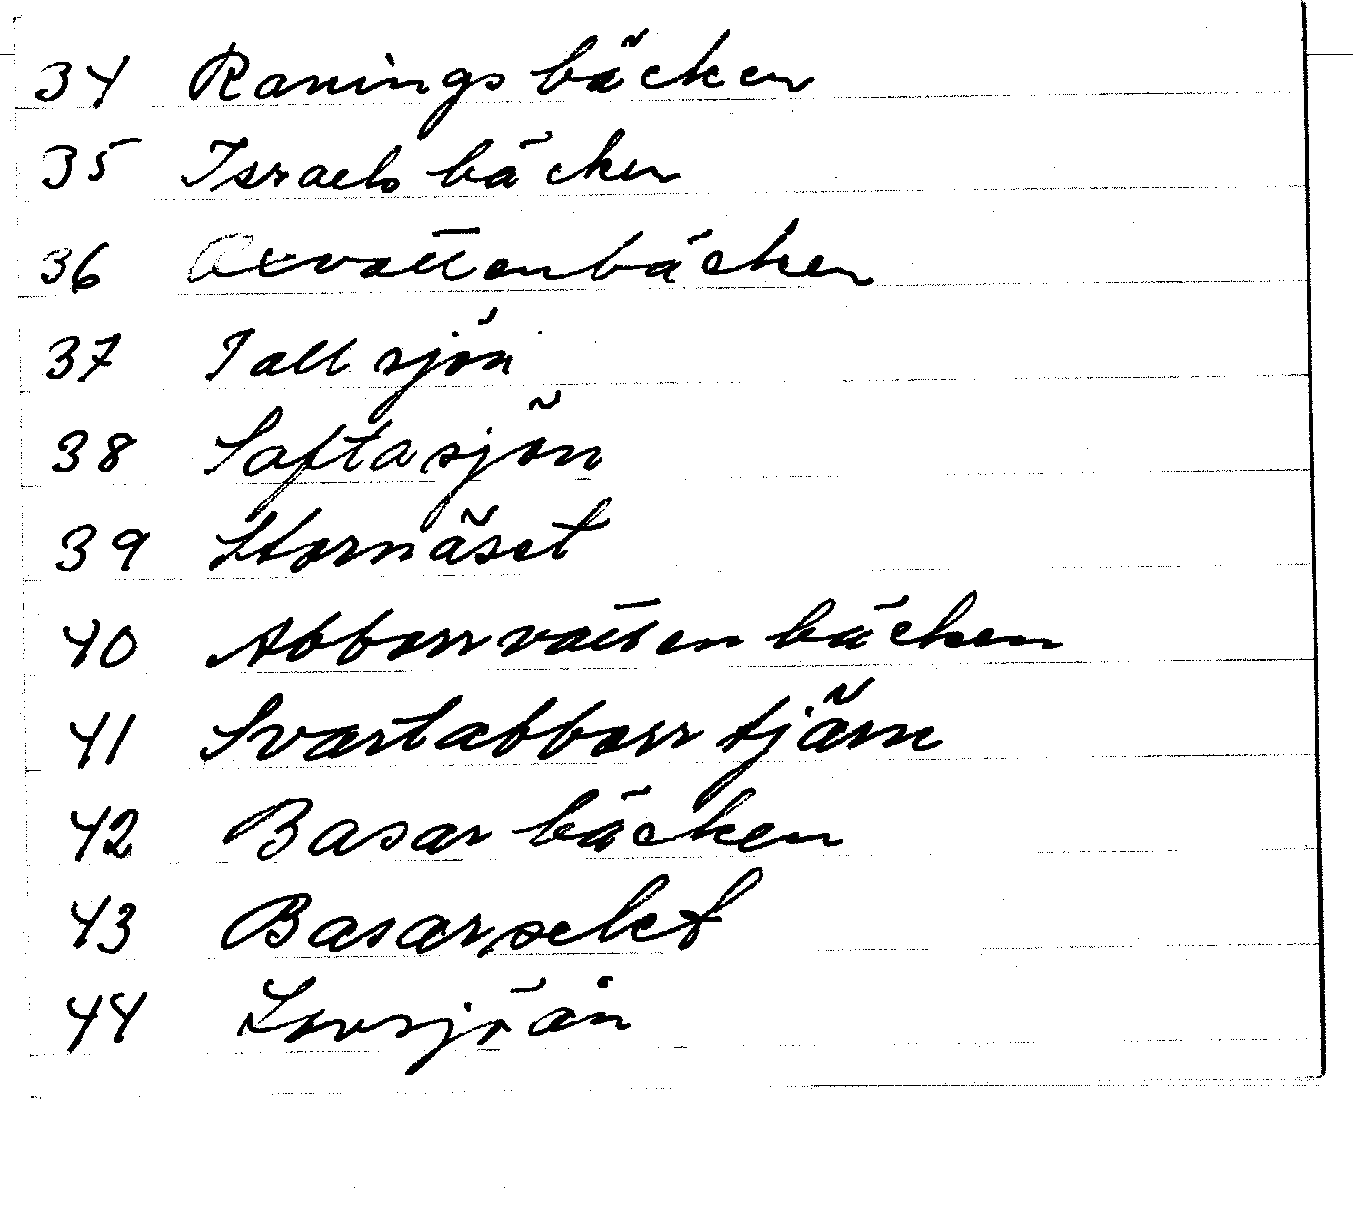 34 Ranings bäcken
35 Israels bäcken
36 Axvattenbäcken
37 Tallsjön
38 Saftasjön
39 Stornäset
40 Abborrvattenbäcken
41 Svartabborrtjärn
42 Basarbäcken
43 Basarselet
44 Lovsjöån